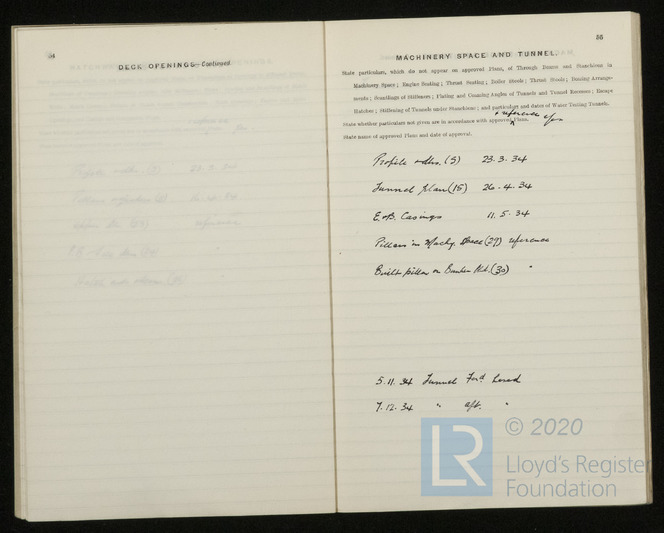 54
DECK OPENINGS—Continued.
55
MACHINERY SPACE AND TUNNEL.
State particulars, which do not appear on approved Plans, of Through Beams and Stanchions in
Machinery Space; Engine Seating; Thrust Seating; Boiler Stools; Thrust Stools; Docking Arrange-
ments; Scantlings of Stiffeners; Plating and Coaming Angles of Tunnels and Tunnel Recesses; Escape
Hatches; Stiffening of Tunnels under Stanchions; and particulars and dates of Water Testing Tunnels.
+ reference
State whether particulars not given are in accordance with approved Plans.
State name of approved Plans and date of approval.
Profile + dks. (5) 23.3.34
Tunnel plan (15) 26.4.34
E.+B. Casings 11.5.34
Pillars in Machy. Space (29) reference
Built pillar on Bunker Bhd. (30) "
5.11.34 Tunnel Ford hosed
7.12.34 " aft. "
© 2020
LR
Lloyd's Register
Foundation